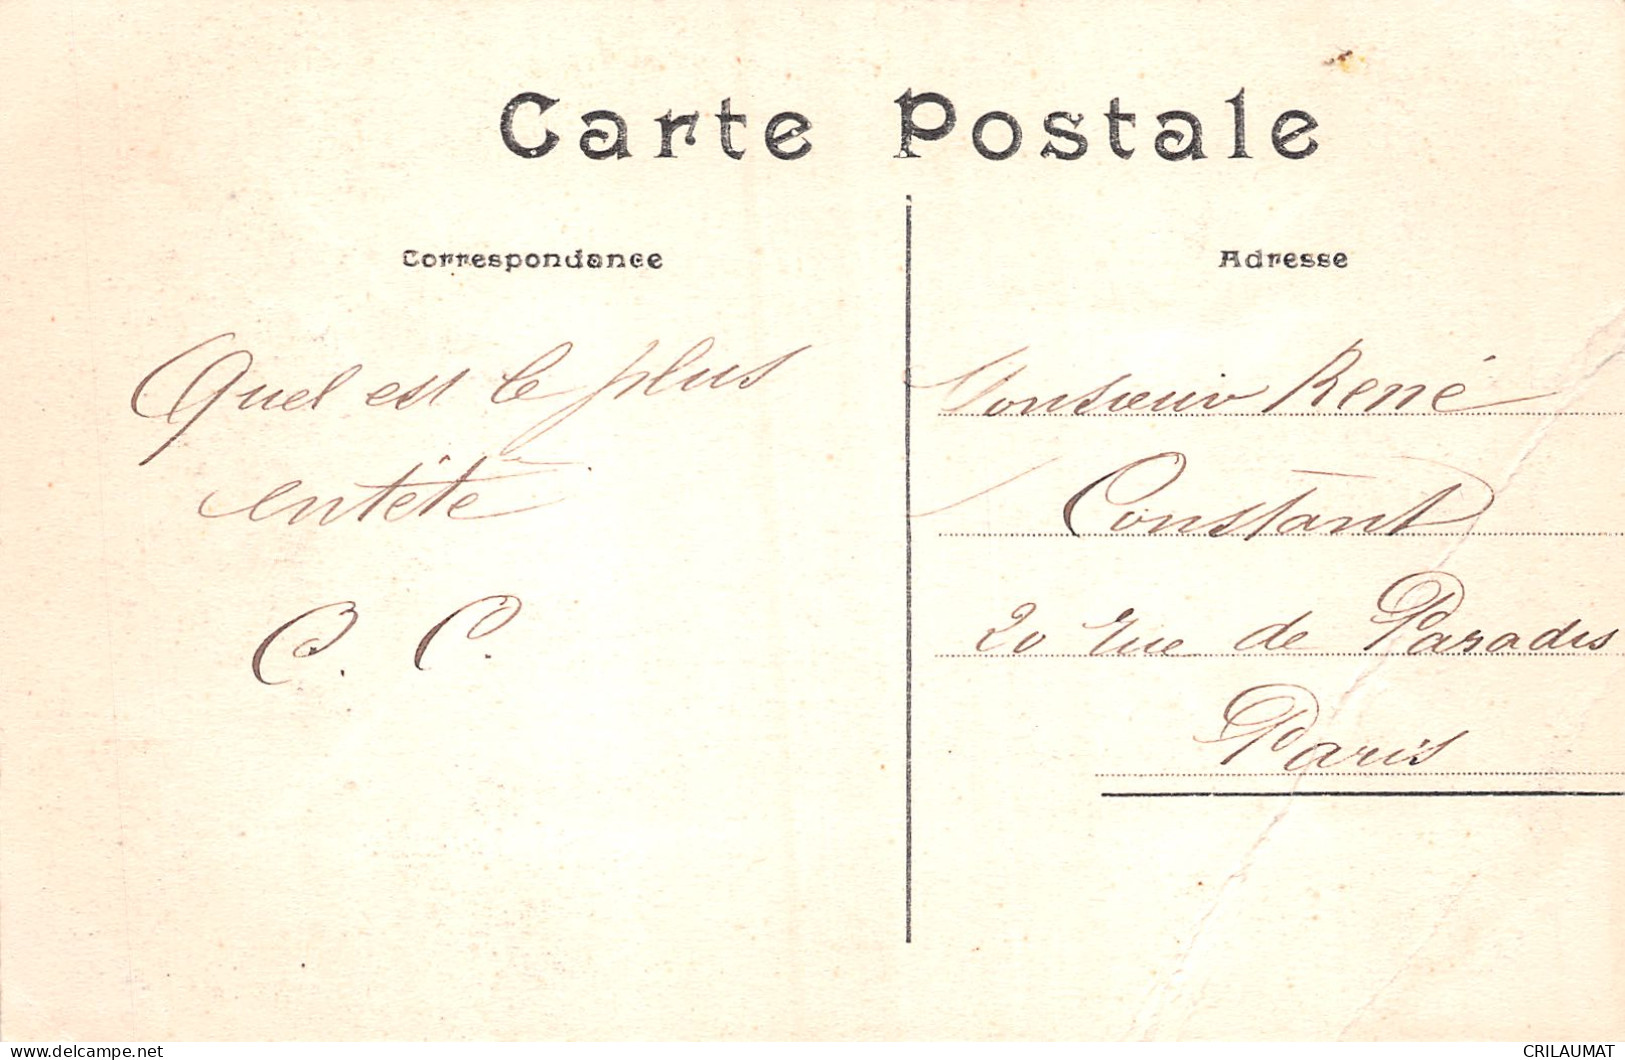 Carte Postale
Correspondance
Quel est le plus
entêté
C. C.
Adresse
Monsieur René
Constant
20 rue de Paradis
Paris
https://www.delcampe.net
CRILAUMAT